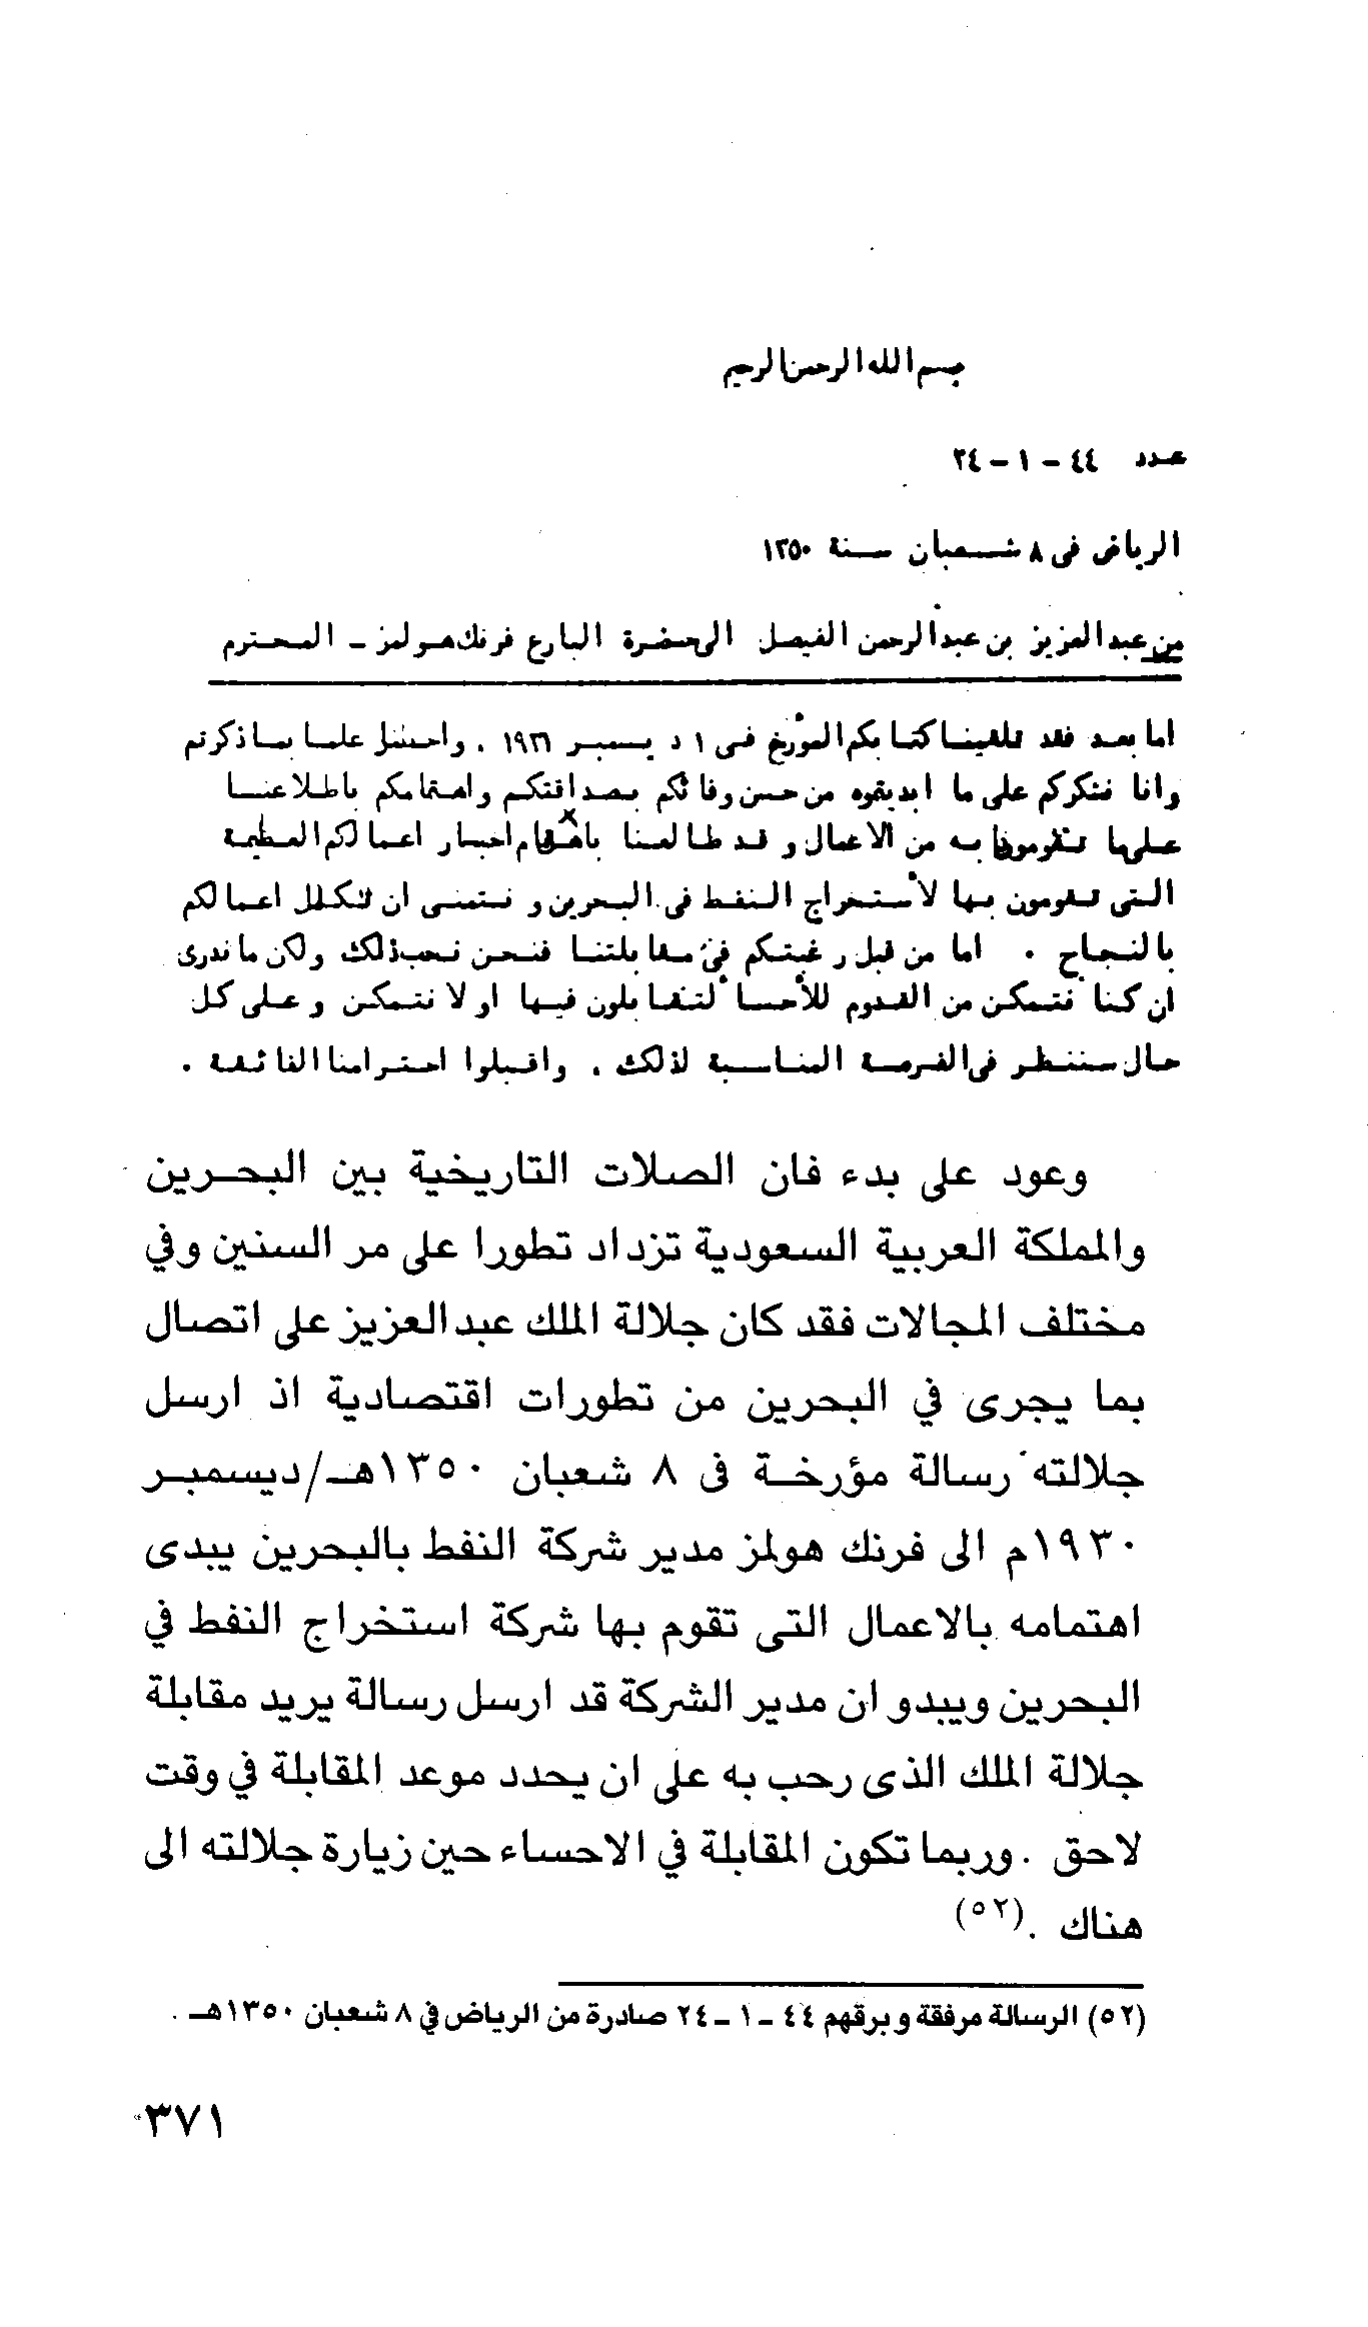 بسم الله الرحمن الرحيم
عدد ٤٤ - ١ - ٢٤
الرياض فى ٨ شعبان سنة ١٣٥٠
من عبدالعزيز بن عبدالرحمن الفيصل الى حضرة البارع فرنك هولمز - المحترم
اما بعد فقد تلقينا كتابكم المؤرخ فى ١ ديسمبر . واحطنا علما بما ذكرتم
وانا نشكركم على ما ابديتموه من حسن وفائكم بصداقتكم واهتمامكم باطلاعنا
على ما تقومون به من الاعمال و قد طالعنا باهتمام اخبار اعمالكم العظيمة
التى تقومون بها لأستخراج النفط فى البحرين و نتمنى ان تكلل اعمالكم
بالنجاح . اما من قبل رغبتكم فى مقابلتنا فنحن نحب ذلك ولكن ما ندرى
ان كنا نتمكن من القدوم للأحساء لتتقابلون فيها او لا نتمكن و على كل
حال سننظر فى الفرصة المناسبة لذلك . واقبلوا احترامنا الفائقة .
وعود على بدء فان الصلات التاريخية بين البحرين
والمملكة العربية السعودية تزداد تطورا على مر السنين وفي
مختلف المجالات فقد كان جلالة الملك عبدالعزيز على اتصال
بما يجرى في البحرين من تطورات اقتصادية اذ ارسل
جلالته رسالة مؤرخة فى ٨ شعبان ١٣٥٠هـ/ديسمبر
١٩٣٠م الى فرنك هولمز مدير شركة النفط بالبحرين يبدى
اهتمامه بالاعمال التى تقوم بها شركة استخراج النفط في
البحرين ويبدو ان مدير الشركة قد ارسل رسالة يريد مقابلة
جلالة الملك الذى رحب به على ان يحدد موعد المقابلة في وقت
لاحق . وربما تكون المقابلة في الاحساء حين زيارة جلالته الى
هناك .(٥٢)
(٥٢) الرسالة مرفقة وبرقهم ٤٤ - ١ - ٢٤ صادرة من الرياض في ٨ شعبان ١٣٥٠هـ .
٣٧١